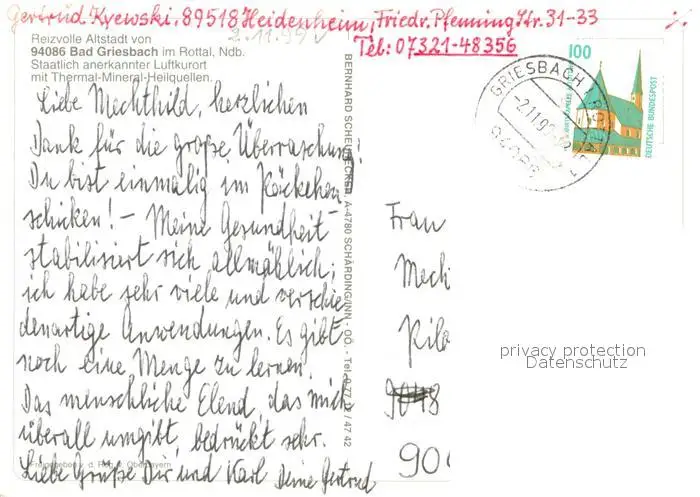 Gertrud Kyewski, 89518 Heidenheim, Friedr. Pfenning Str. 31-33
2.11.99
Tel: 07321-48356
Reizvolle Altstadt von
94086 Bad Griesbach im Rottal, Ndb.
Staatlich anerkannter Luftkurort
mit Thermal-Mineral-Heilquellen.
Liebe Mechthild, herzlichen
Dank für die große Überraschung!
Du bist einmalig im Päckchen
schicken! – Meine Gesundheit
stabilisiert sich allmählich;
ich habe sehr viele und verschie
denartige Anwendungen. Es gibt
noch eine Menge zu lernen.
Das menschliche Elend, das mich
überall umgibt, bedrückt sehr.
Liebe Grüße Dir und Karl Deine Gertrud
Freigegeben v. d. Reg. v. Oberbayern
BERNHARD A-4780 SCHÄRDING/INN - OÖ. - Tel. 0 77 12 / 47 42
GRIESBACH I ROTTAL
94086
100
DEUTSCHE BUNDESPOST
Frau
Mech
Kilo
90
privacy protection
Datenschutz